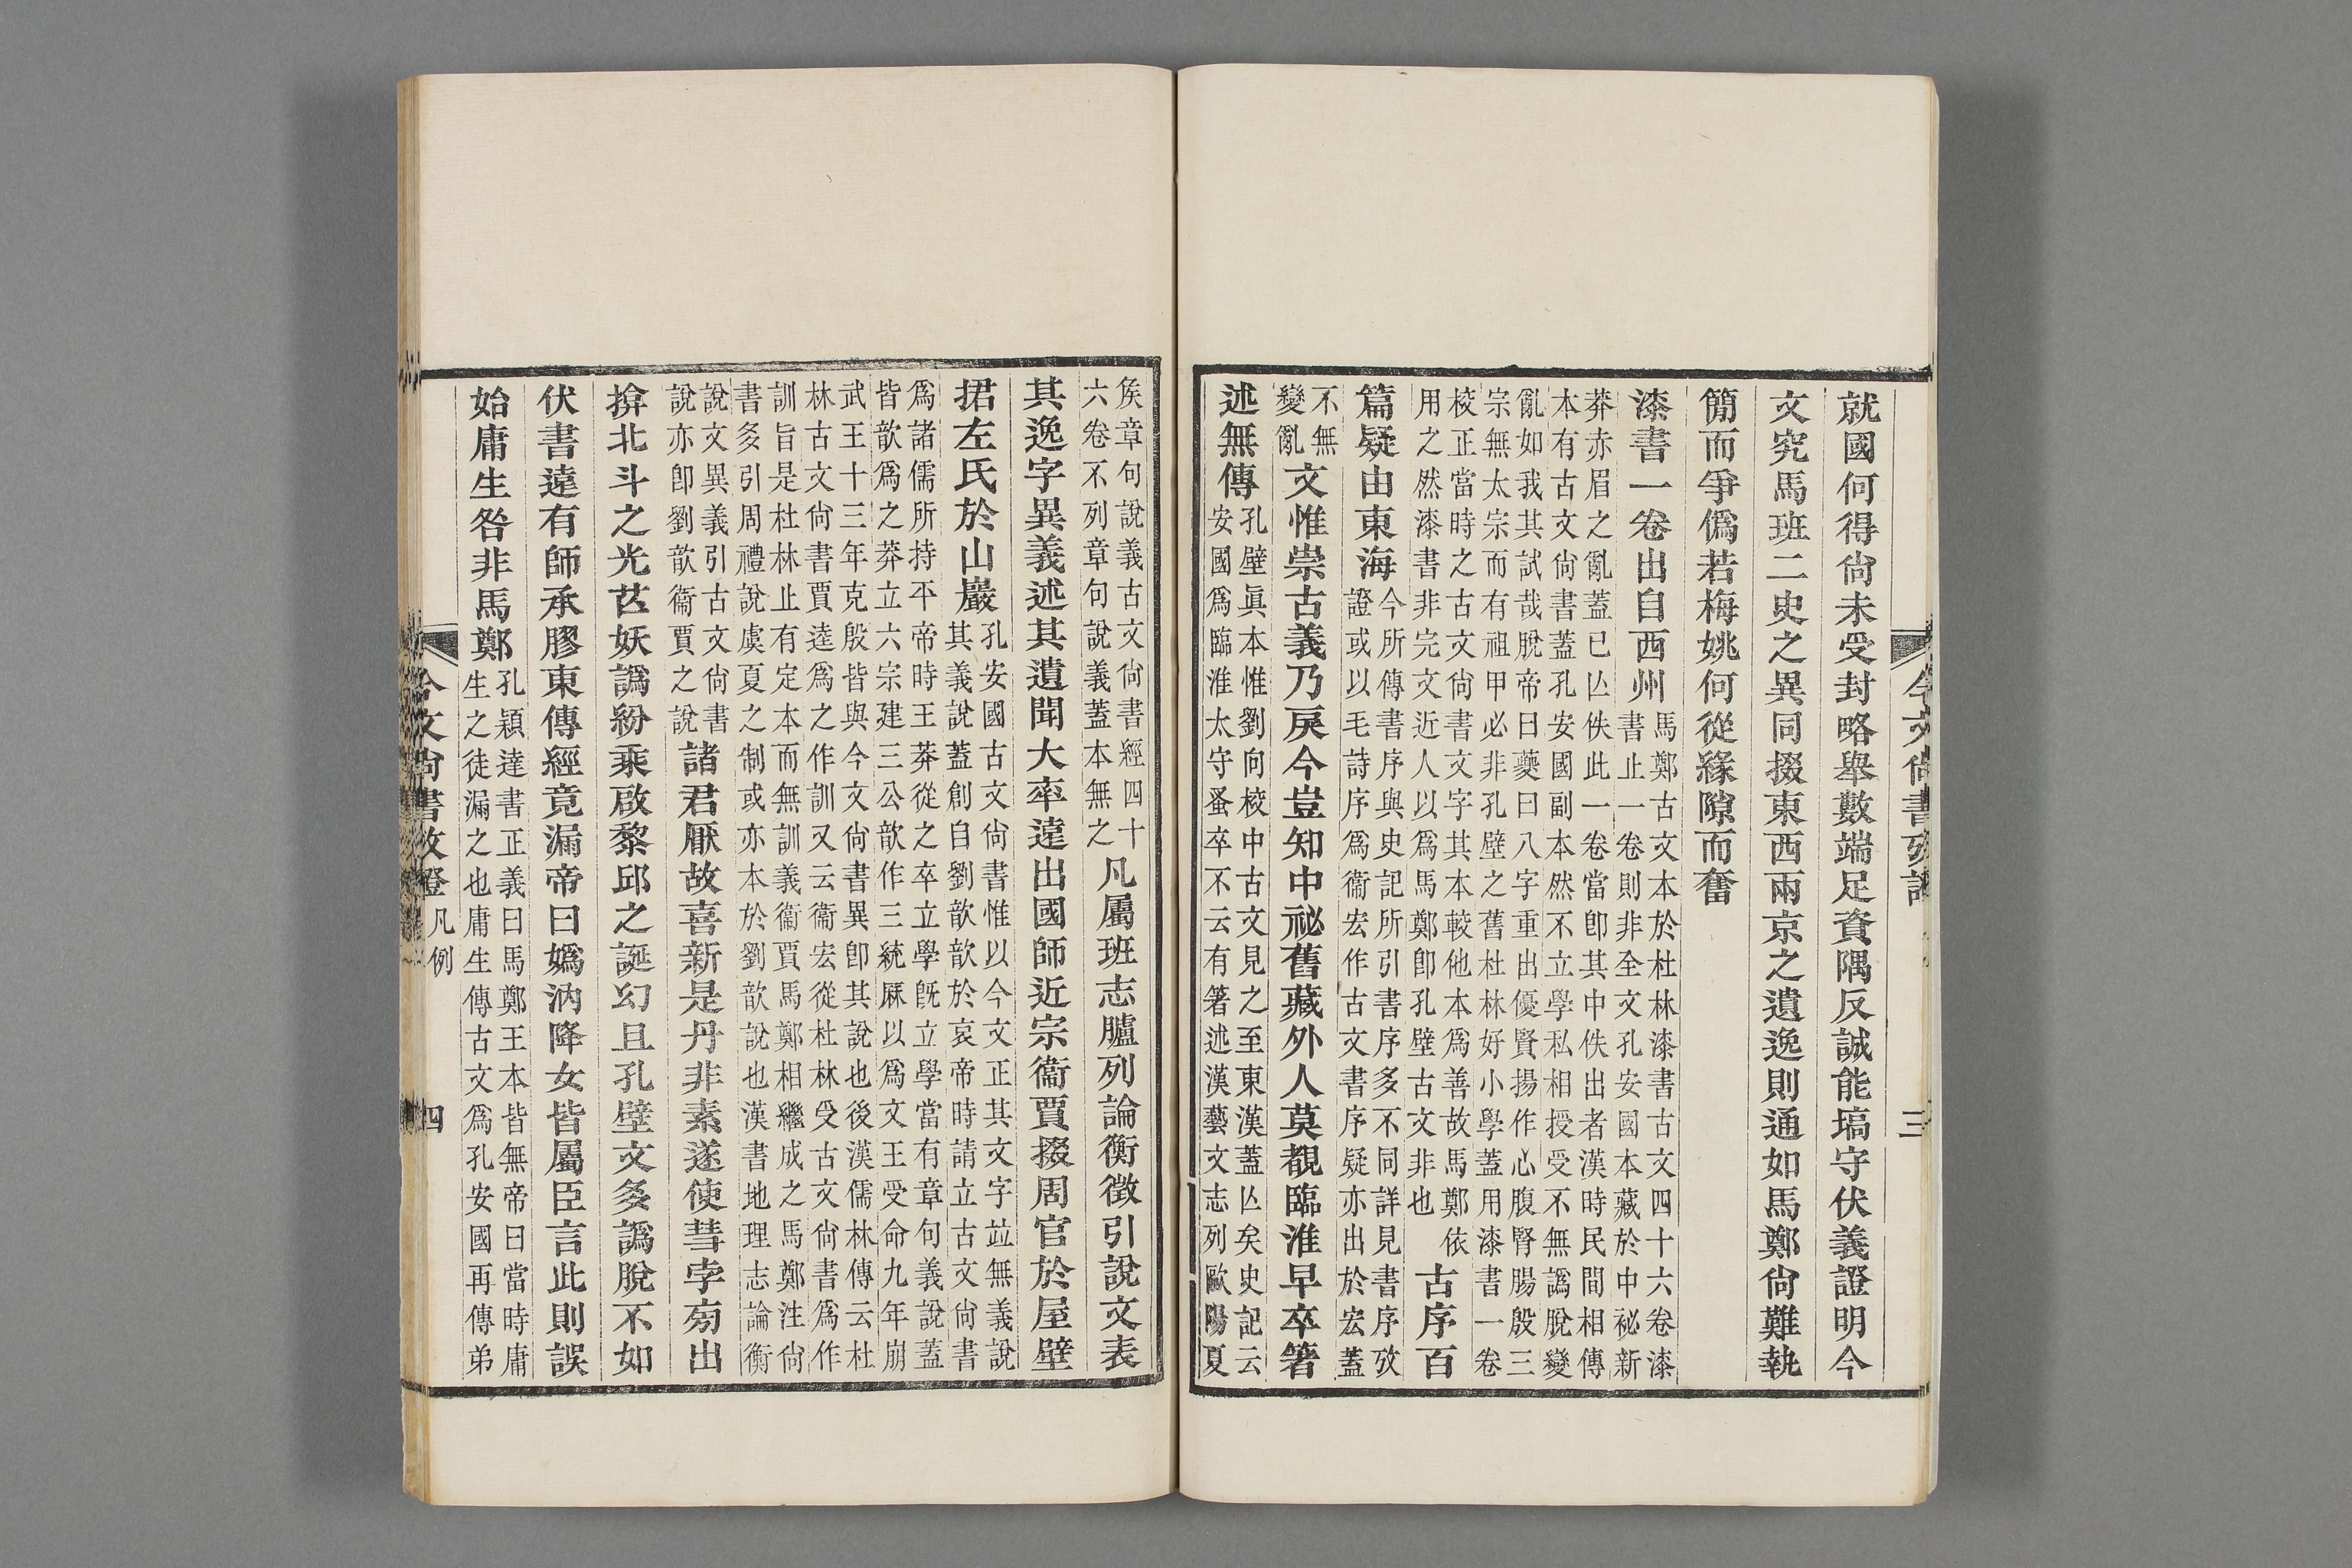 就國何得尙未受封略舉數端足資隅反誠能墑守伏義證明今
文究馬班二史之異同掇東西兩京之遺逸則通如馬鄭尙難執
簡而爭僞若梅姚何從緣隙而奮
漆書一卷出自西州馬鄭古文本於杜林漆書古文四十六卷漆
書止一卷則非全文孔安國本藏於中祕新
莽赤眉之亂蓋已亾佚此一卷當卽其中佚出者漢時民間相傳
本有古文尙書蓋孔安國副本然不立學私相授受不無譌脫變
亂如我其試哉脫帝曰夔曰八字重出優賢揚作心腹腎腸殷三
宗無太宗而有祖甲必非孔壁之舊杜林好小學蓋用漆書一卷
校正當時之古文尙書文字其本較他本爲善故馬鄭依
用之然漆書非完文近人以爲馬鄭卽孔壁古文非也
古序百
篇疑由東海今所傳書序與史記所引書序多不同詳見書序攷
證或以毛詩序爲衞宏作古文書序疑亦出於宏蓋
不無
變亂
文惟崇古義乃戾今豈知中祕舊藏外人莫覩臨淮早卒箸
述無傳孔壁眞本惟劉向校中古文見之至東漢蓋亾矣史記云
安國爲臨淮太守蚤卒不云有箸述漢藝文志列歐陽夏
今文尙書攷證
三
矦章句說義古文尙書經四十
六卷不列章句說義蓋本無之
凡屬班志臚列論衡徵引說文表
其逸字異義述其遺聞大率遠出國師近宗衞賈掇周官於屋壁
捃左氏於山巖孔安國古文尙書惟以今文正其文字竝無義說
其義說蓋創自劉歆歆於哀帝時請立古文尙書
爲諸儒所持平帝時王莽從之卒立學旣立學當有章句義說蓋
皆歆爲之莽立六宗建三公歆作三統厤以爲文王受命九年崩
武王十三年克殷皆與今文尙書異卽其說也後漢儒林傳云杜
林古文尙書賈逵爲之作訓又云衞宏從杜林受古文尙書爲作
訓旨是杜林止有定本而無訓義衞賈馬鄭相繼成之馬鄭注尙
書多引周禮說虞夏之制或亦本於劉歆說也漢書地理志論衡
說文異義引古文尙書
說亦卽劉歆衞賈之說
諸君厭故喜新是丹非素遂使彗孛旁出
揜北斗之光芒妖譌紛乘啟黎邱之誕幻且孔壁文多譌脫不如
伏書遠有師承膠東傳經竟漏帝曰嬀汭降女皆屬臣言此則誤
始庸生咎非馬鄭孔穎達書正義曰馬鄭王本皆無帝曰當時庸
生之徒漏之也庸生傳古文爲孔安國再傳弟
今文尙書攷證
凡例
四